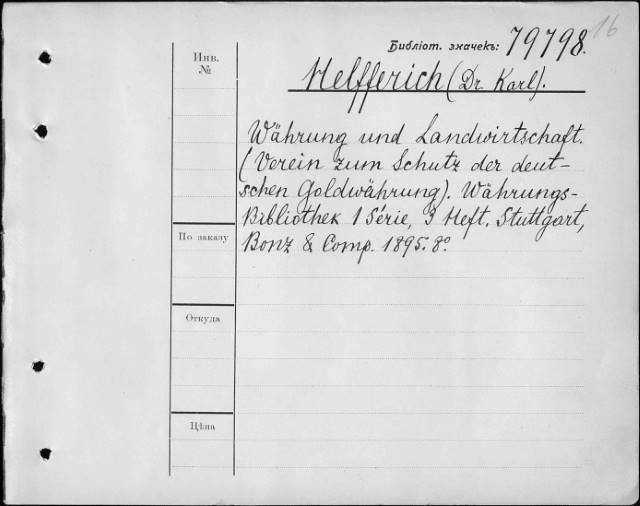 16
Библіот. значекъ: 79798.
Инв.
№
Helfferich (Dr. Karl).
Währung und Landwirtschaft.
(Verein zum Schutz der deut-
schen Goldwährung). Währungs-
Bibliothek 1 Série, 3 Heft. Stuttgart,
Bonz & Comp. 1895. 8º
По заказу
Откуда
Цѣна